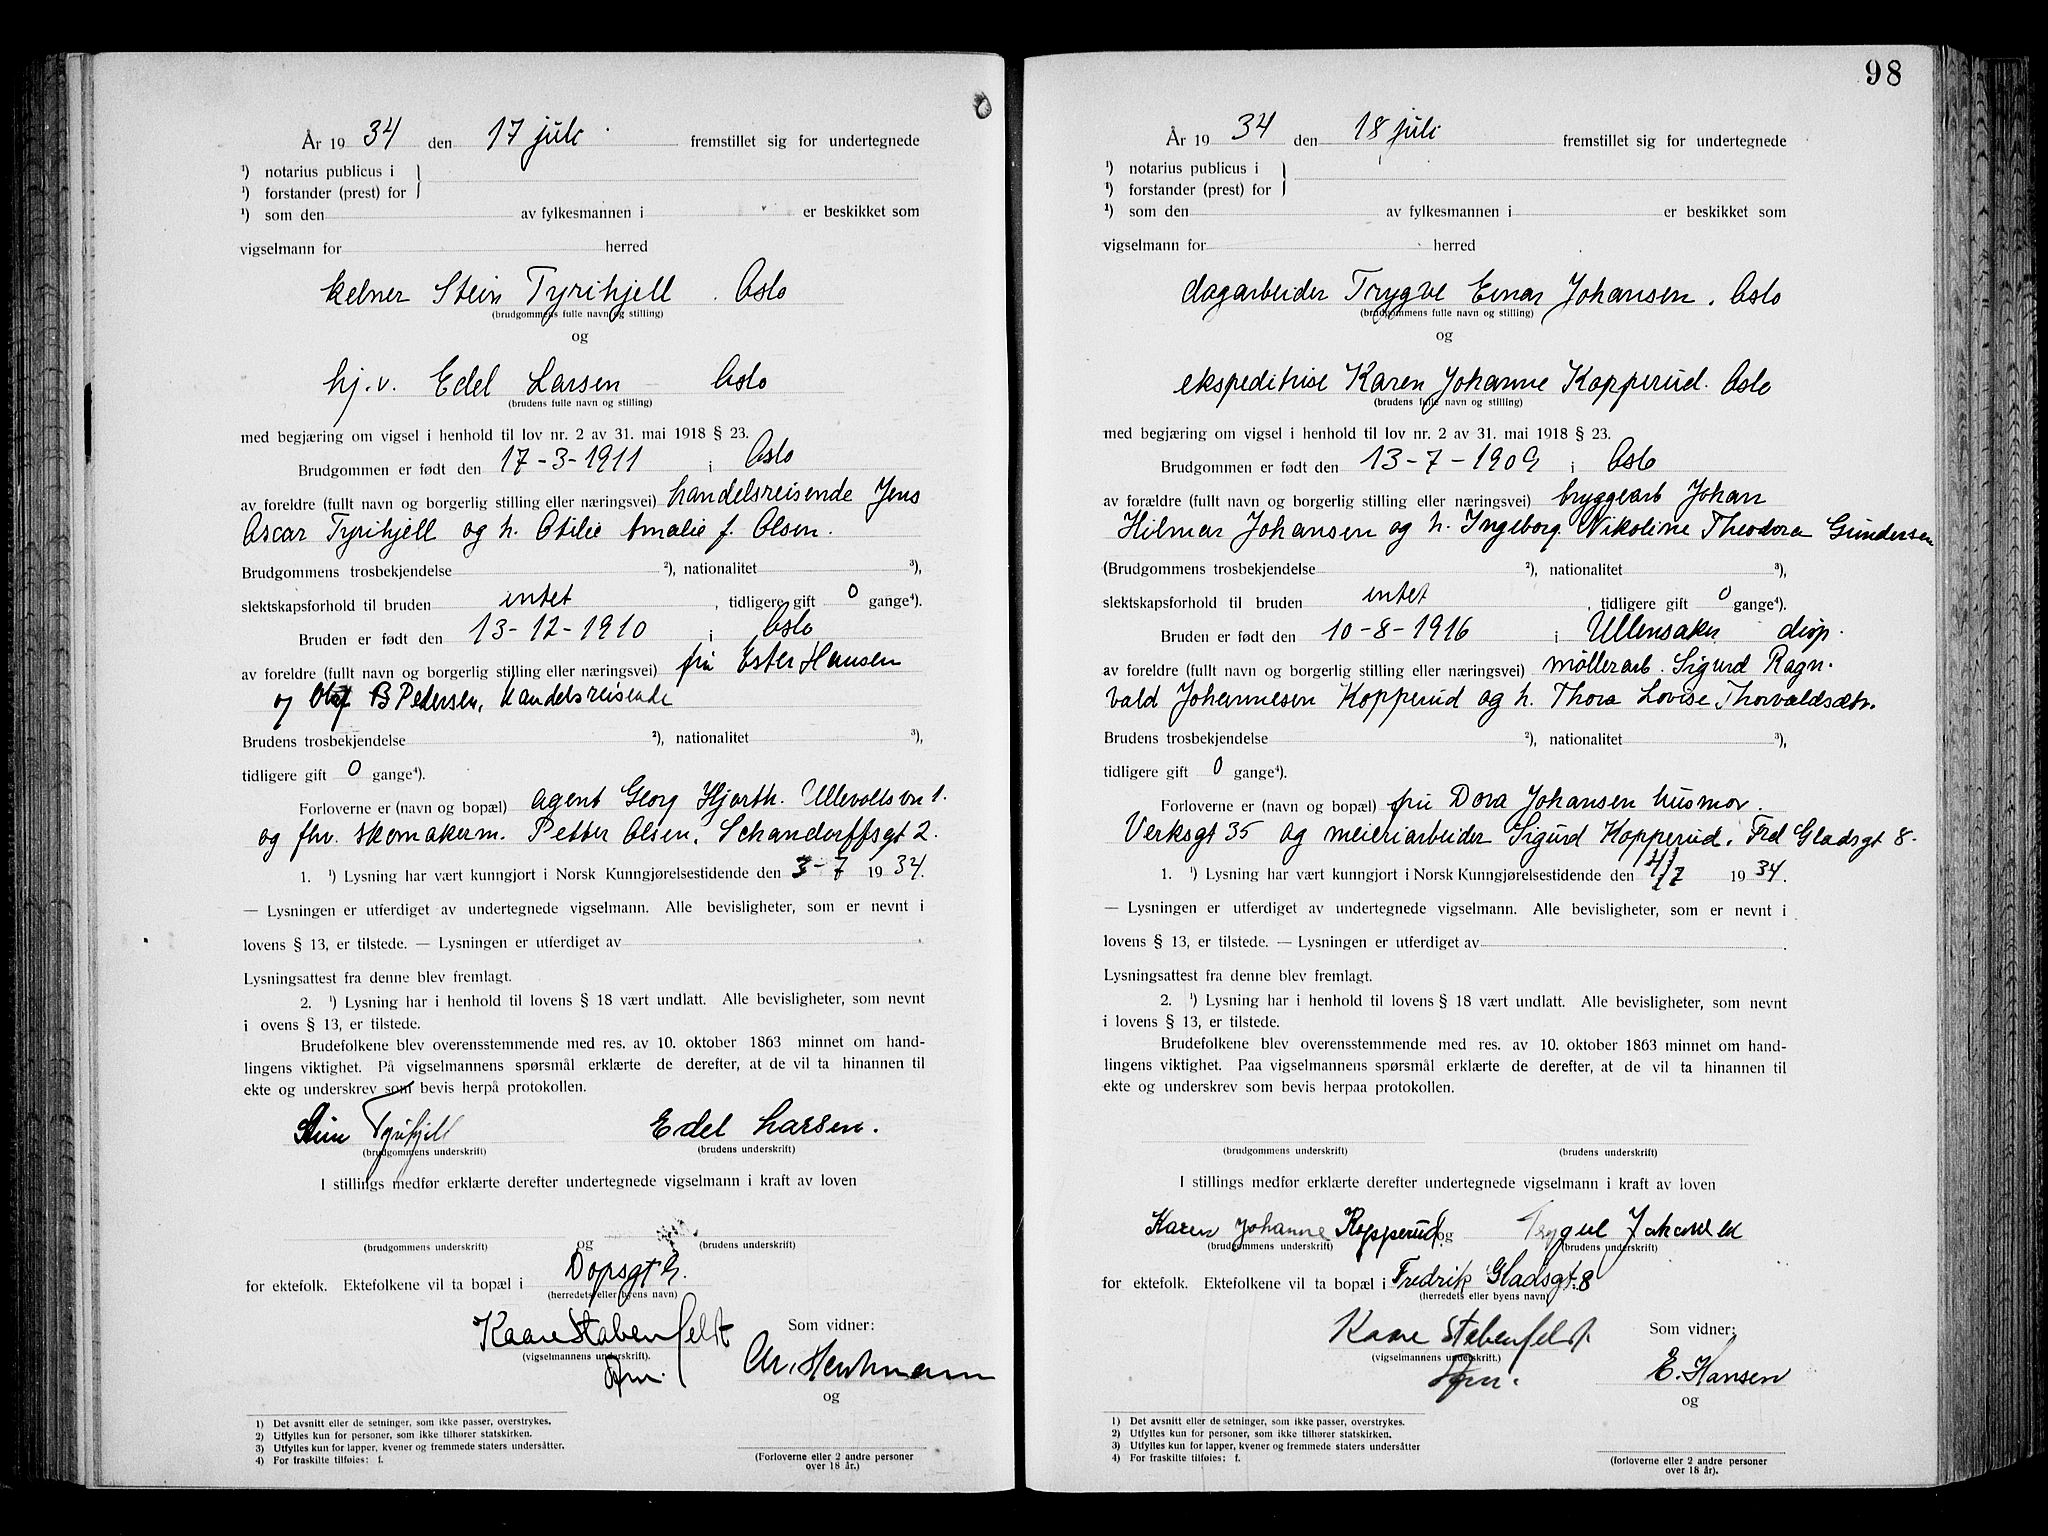 År 1934 den 17 juli fremstillet sig for undertegnede
¹) notarius publicus i
¹) forstander (prest) for
¹) som den av fylkesmannen i er beskikket som
vigselmann for herred
kelner Stein Tyrihjell. Oslo
(brudgommens fulle navn og stilling)
og
hj.v. Edel Larsen Oslo
(brudens fulle navn og stilling)
med begjæring om vigsel i henhold til lov nr. 2 av 31. mai 1918 § 23.
Brudgommen er født den 17-3-1911 i Oslo
av foreldre (fullt navn og borgerlig stilling eller næringsvei) handelsreisende Jens
Oscar Tyrihjell og h. Otilie Amalie f. Olsen.
Brudgommens trosbekjendelse ²), nationalitet ³),
slektskapsforhold til bruden intet, tidligere gift 0 gange⁴).
Bruden er født den 13-12-1910 i Oslo
av foreldre (fullt navn og borgerlig stilling eller næringsvei) fru Ester Hansen
og Olaf B Pedersen, handelsreisende
Brudens trosbekjendelse ²), nationalitet ³),
tidligere gift 0 gange⁴).
Forloverne er (navn og bopæl) agent Georg Hjorth. Ullevollsvn 1.
og fhv. skomakerm. Petter Olsen, Schandorffsgt 2.
1. ¹) Lysning har vært kunngjort i Norsk Kunngjørelsestidende den 3-7 1934.
— Lysningen er utferdiget av undertegnede vigselmann. Alle bevisligheter, som er nevnt i
lovens § 13, er tilstede. — Lysningen er utferdiget av
Lysningsattest fra denne blev fremlagt.
2. ¹) Lysning har i henhold til lovens § 18 vært undlatt. Alle bevisligheter, som nevnt
i ovens § 13, er tilstede.
Brudefolkene blev overensstemmende med res. av 10. oktober 1863 minnet om hand-
lingens viktighet. På vigselmannens spørsmål erklærte de derefter, at de vil ta hinannen til
ekte og underskrev som bevis herpå protokollen.
Stein Tyrihjell Edel Larsen.
(brudgommens underskrift) (brudens underskrift)
I stillings medfør erklærte derefter undertegnede vigselmann i kraft av loven
og
(brudgommens underskrift) (brudens underskrift)
for ektefolk. Ektefolkene vil ta bopæl i Dopsgt 6.
(herredets eller byens navn)
Kaare Stabenfeldt Som vidner:
(vigselmannens underskrift).
og
1) Det avsnitt eller de setninger, som ikke passer, overstrykes.
2) Utfylles kun for personer, som ikke tilhører statskirken.
3) Utfylles kun for lapper, kvener og fremmede staters undersåtter.
4) For fraskilte tilføies: f.
(Forloverne eller 2 andre personer
over 18 år.)
98
År 1934 den 18 juli fremstillet sig for undertegnede
¹) notarius publicus i
¹) forstander (prest) for
¹) som den av fylkesmannen i er beskikket som
vigselmann for herred
dagarbeider Trygve Einar Johansen. Oslo
(brudgommens fulle navn og stilling)
og
ekspeditrise Karen Johanne Kopperud. Oslo
(brudens fulle navn og stilling)
med begjæring om vigsel i henhold til lov nr. 2 av 31. mai 1918 § 23.
Brudgommen er født den 13-7-1909 i Oslo
av forældre (fullt navn og borgerlig stilling eller næringsvei) bryggearb Johan
Hilmar Johansen og h. Ingeborg Nikoline Theodora Gundersen
(Brudgommens trosbekjendelse ²), nationalitet ³),
slektskapsforhold til bruden intet, tidligere gift 0 gange⁴).
Bruden er født den 10-8-1916 i Ullensaker disp.
av foreldre (fullt navn og borgerlig stilling eller næringsvei) møllerarb. Sigurd Ragn-
vald Johannesen Kopperud og h. Thora Lovise Thorvaldsdtr.
Brudens trosbekjendelse ²), nationalitet ³),
tidligere gift 0 gange⁴).
Forloverne er (navn og bopæl) fru Dora Johansen husmor.
Verksgt 35 og meieriarbeider Sigurd Kopperud. Frd Gladsgt 8.
1. ¹) Lysning har vært kunngjort i Norsk Kunngjørelsestidende den 4/7 1934.
— Lysningen er utferdiget av undertegnede vigselmann. Alle bevisligheter, som er nevnt i
lovens § 13, er tilstede. — Lysningen er utferdiget av
Lysningsattest fra denne blev fremlagt.
2. ¹) Lysning har i henhold til lovens § 18 vært undlatt. Alle bevisligheter, som nevnt
i lovens § 13, er tilstede.
Brudefolkene blev overensstemmende med res. av 10. oktober 1863 minnet om hand-
lingens viktighet. Paa vigselmannens spørsmål erklærte de derefter, at de vil ta hinannen til
ekte og underskrev som bevis herpaa protokollen.
(brudgommens underskrift) (brudens underskrift)
I stillings medfør erklærte derefter undertegnede vigselmann i kraft av loven
Karen Johanne Kopperud og Trygve Johansen
(brudgommens underskrift) (brudens underskrift)
for ektefolk. Ektefolkene vil ta bopæl i Fredrik Gladsgt. 8
(herredets eller byens navn)
Kaare Stabenfeldt Som vidner:
(vigselmannens underskrift.)
E. Hansen
og
1) Det avsnitt eller de setninger, som ikke passer, overstrykes.
2) Utfylles kun for personer, som ikke tilhører statskirken.
3) Utfylles kun for lapper, kvener og fremmede staters undersåtter
4) For fraskilte tilføies: f.
(forloverne eller 2 andre personer
over 18 år).